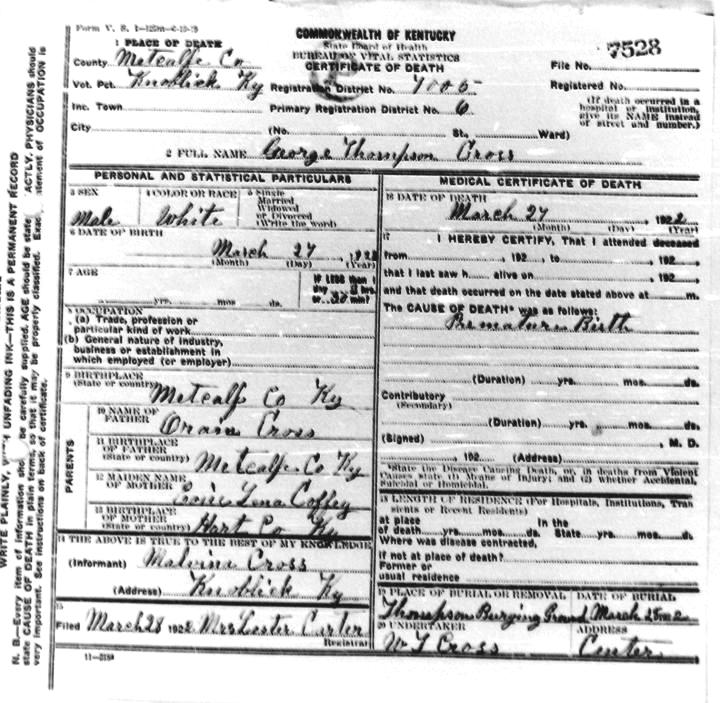 Form V. S.
COMMONWEALTH OF KENTUCKY
State Board of Health
BUREAU OF VITAL STATISTICS
CERTIFICATE OF DEATH
7528
File No.
Registered No.
(If death occurred in a hospital or institution, give its NAME instead of street and number.)
1 PLACE OF DEATH
County Metcalfe Co
Vot. Pct. Knoblick Ky Registration District No. 1005
Inc. Town Primary Registration District No. 6
City (No. St., Ward)
2 FULL NAME George Thompson Cross
PERSONAL AND STATISTICAL PARTICULARS
3 SEX 4 COLOR OR RACE 5 Single Married Widowed or Divorced (Write the word)
Male White
6 DATE OF BIRTH
March 27, 192
(Month) (Day) (Year)
7 AGE
yrs. mos. ds.
IF LESS than 1 day hrs. or min?
8 OCCUPATION
(a) Trade, profession or particular kind of work
(b) General nature of industry, business or establishment in which employed (or employer)
9 BIRTHPLACE
(State or country) Metcalfe Co Ky
PARENTS
10 NAME OF FATHER Cross
11 BIRTHPLACE OF FATHER
(State or country) Metcalfe Co Ky
12 MAIDEN NAME OF MOTHER Lena Coffey
13 BIRTHPLACE OF MOTHER
(State or country) Hart Co Ky
14 THE ABOVE IS TRUE TO THE BEST OF MY KNOWLEDGE
(Informant) Malvina Cross
(Address) Knoblick Ky
15
Filed March 28 1922 Mrs Lester Carter
Registrar
MEDICAL CERTIFICATE OF DEATH
16 DATE OF DEATH
March 27, 1922
(Month) (Day) (Year)
17
I HEREBY CERTIFY, That I attended deceased
from , 192 , to , 192 ,
that I last saw h alive on , 192 ,
and that death occurred on the date stated above at m.
The CAUSE OF DEATH* was as follows:
Premature Birth
(Duration) yrs. mos. ds.
Contributory
(Secondary)
(Duration) yrs. mos. ds.
(Signed) , M. D.
, 192 (Address)
*State the Disease Causing Death, or, in deaths from Violent Causes state (1) Means of Injury; and (2) whether Accidental, Suicidal or Homicidal.
18 LENGTH OF RESIDENCE (For Hospitals, Institutions, Transients or Recent Residents)
at place of death yrs. mos. ds. In the State yrs. mos. ds.
Where was disease contracted,
if not at place of death?
Former or
usual residence
19 PLACE OF BURIAL OR REMOVAL DATE OF BURIAL
Thompson Burying Ground March 28
20 UNDERTAKER ADDRESS
W T Cross Center
N. B.—Every item of information should be carefully supplied. AGE should be stated EXACTLY. PHYSICIANS should state CAUSE OF DEATH in plain terms, so that it may be properly classified. Exact statement of OCCUPATION is very important. See instructions on back of certificate.
WRITE PLAINLY, UNFADING INK—THIS IS A PERMANENT RECORD